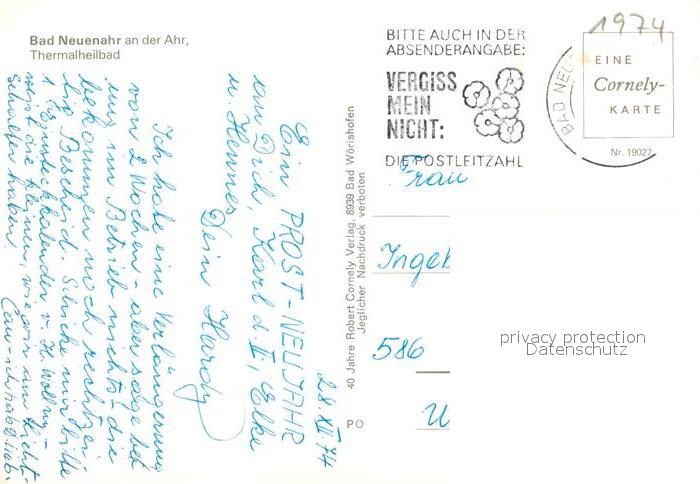 Bad Neuenahr an der Ahr,
Thermalheilbad
BITTE AUCH IN DER
ABSENDERANGABE:
VERGISS
MEIN
NICHT:
DIE POSTLEITZAHL
BAD NEU
1974
EINE
Cornely-
KARTE
Nr. 19027
40 Jahre Robert Cornely Verlag, 8939 Bad Wörishofen
Jeglicher Nachdruck verboten
PO
28.XII.74
Ein PROST-NEUJAHR
an Dich, Karl d. II, Elke
u. Hennes
Dein Hardy
Ich habe eine Verlängerung
von 2 Wochen - aber sage bei
uns im Betrieb nichts - die
bekommen noch rechtzei-
tig Bescheid. Schicke mir bitte
1 Einsteckkalender v. H.
die kleinen, wie wir am
haben.
Frau
Inge
586
U
privacy protection
Datenschutz